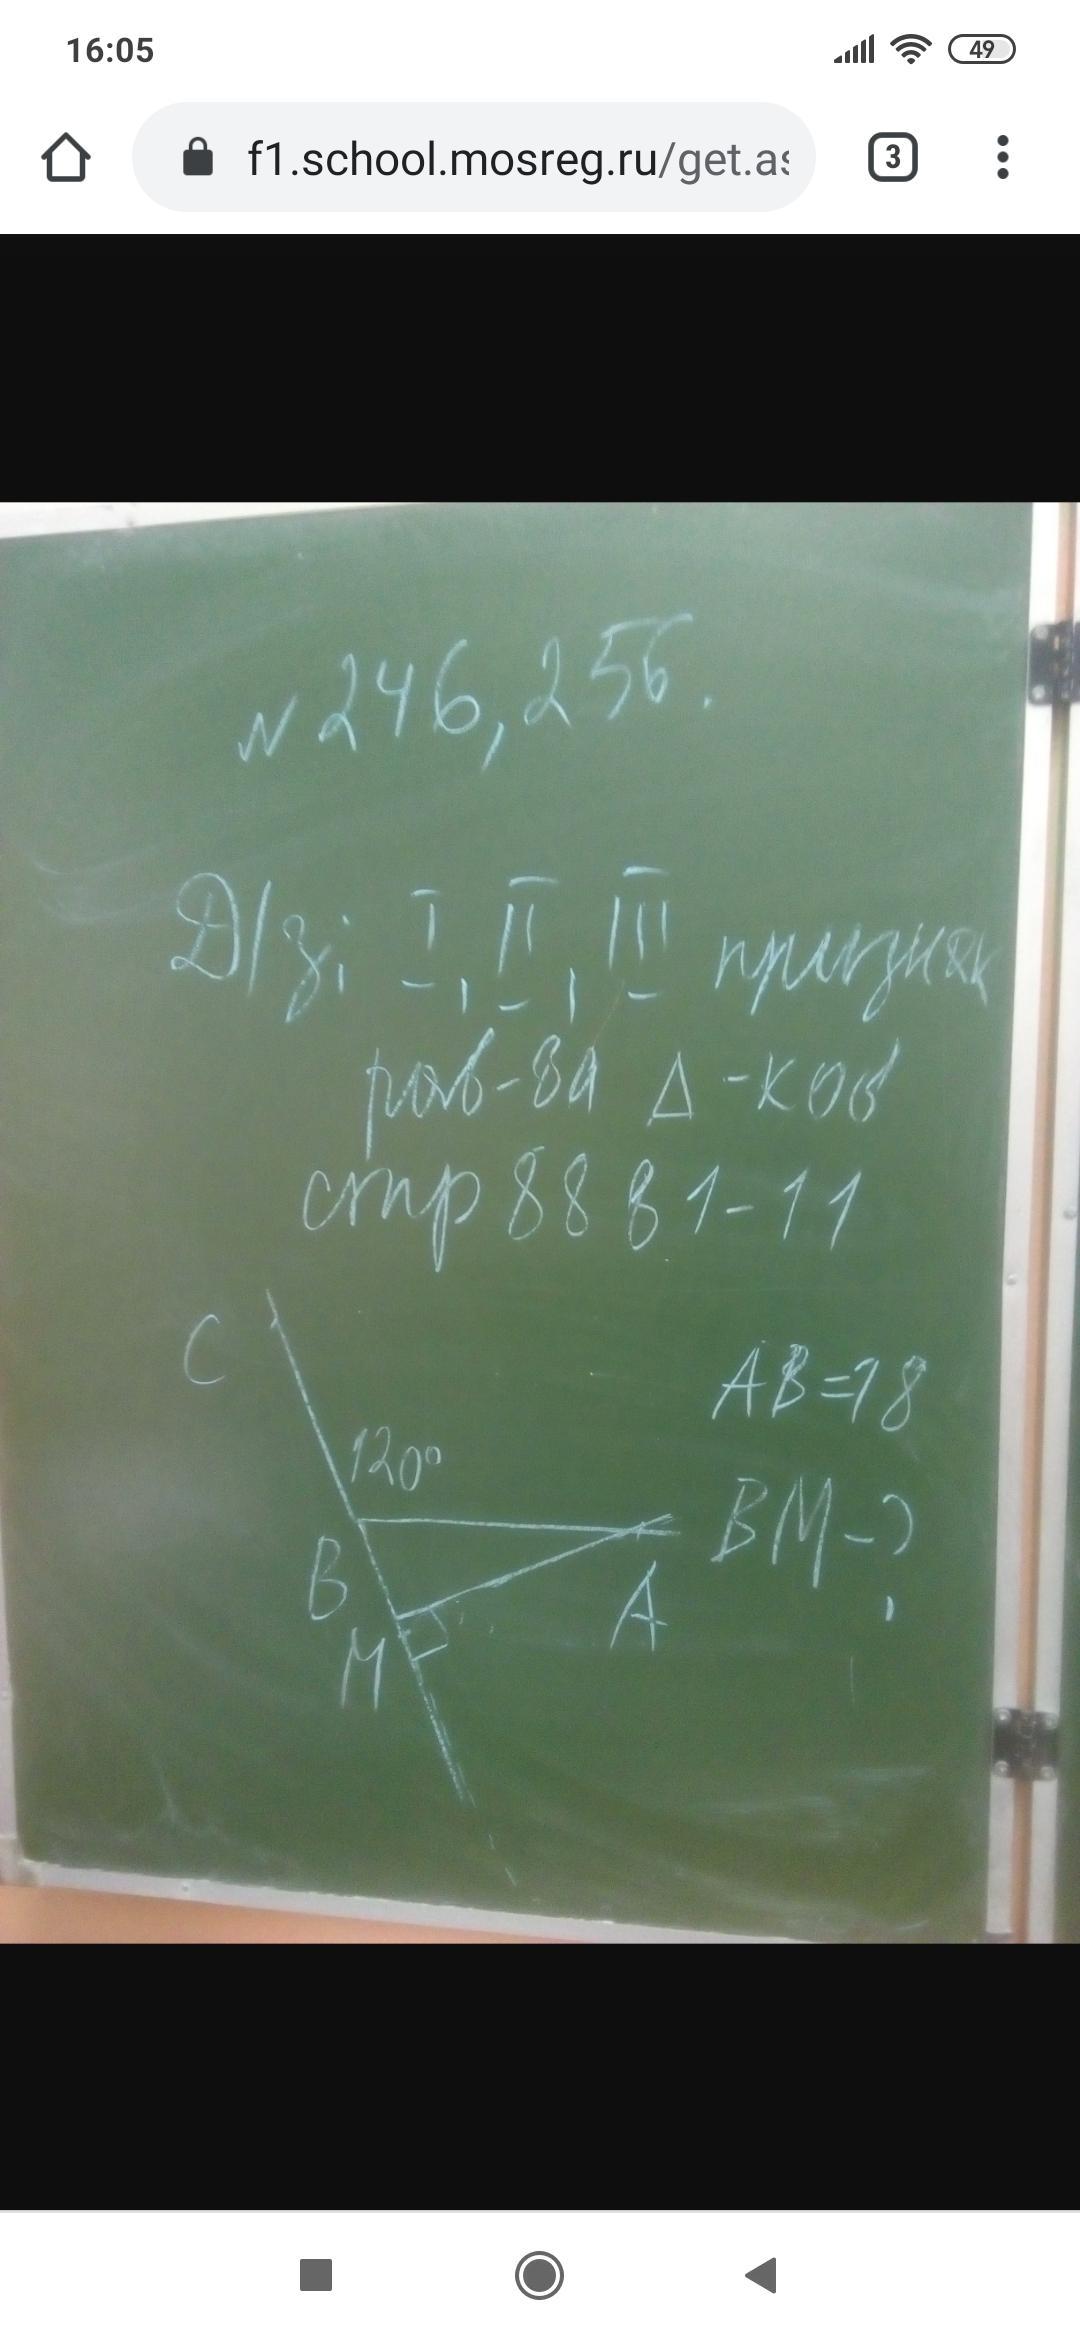 16:05
49
f1.school.mosreg.ru/get.as
3
N 246, 256.
Д/з: I, II, III признак
рав-ва Δ-ков
стр 88 в 1-11
C
AB=18
120°
BM-?
B
A
M